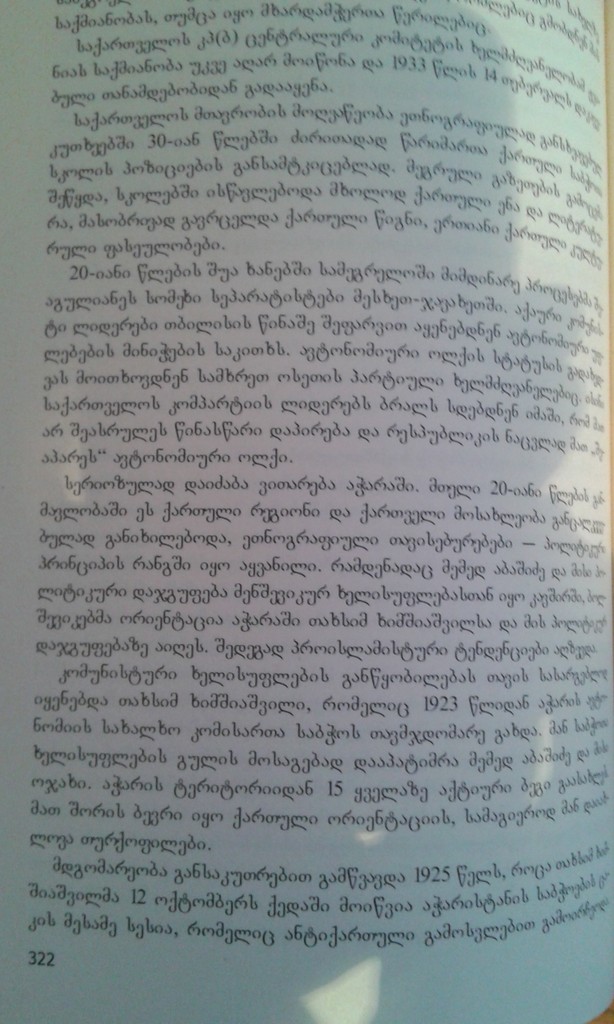 საქმიანობას, თუმცა იყო მხარდამჭერთა წერილებიც.
საქართველოს კპ(ბ) ცენტრალური კომიტეტის ხელმძღვანელობამ
ნიას საქმიანობა უკვე აღარ მოიწონა და 1933 წლის 14 თებერვალს
ბული თანამდებობიდან გადააყენა.
საქართველოს მთავრობის მოღვაწეობა ეთნოგრაფიულად განსხვავებულ
კუთხეებში 30-იან წლებში ძირითადად წარიმართა ქართული საბჭოთა
სკოლის პოზიციების განსამტკიცებლად. მეგრული გაზეთების გამოცემა
შეწყდა, სკოლებში ისწავლებოდა მხოლოდ ქართული ენა და ლიტერატუ-
რა, მასობრივად გავრცელდა ქართული წიგნი, ერთიანი ქართული კულტუ-
რული ფასეულობები.
20-იანი წლების შუა ხანებში სამეგრელოში მიმდინარე პროცესებმა
აგულიანეს სომეხი სეპარატისტები მესხეთ-ჯავახეთში. აქაური კომუნის-
ტი ლიდერები თბილისის წინაშე შეფარვით აყენებდნენ ავტონომიური უფ-
ლებების მინიჭების საკითხს. ავტონომიური ოლქის სტატუსის გადახედ-
ვას მოითხოვდნენ სამხრეთ ოსეთის პარტიული ხელმძღვანელებიც. ისინი
საქართველოს კომპარტიის ლიდერებს ბრალს სდებდნენ იმაში, რომ მათ
არ შეასრულეს წინასწარი დაპირება და რესპუბლიკის ნაცვლად მათ „შე-
აპარეს“ ავტონომიური ოლქი.
სერიოზულად დაიძაბა ვითარება აჭარაში. მთელი 20-იანი წლების გან-
მავლობაში ეს ქართული რეგიონი და ქართველი მოსახლეობა განცალკევე-
ბულად განიხილებოდა, ეთნოგრაფიული თავისებურებები — პოლიტიკური
პრინციპის რანგში იყო აყვანილი. რამდენადაც მემედ აბაშიძე და მისი პო-
ლიტიკური დაჯგუფება მენშევიკურ ხელისუფლებასთან იყო კავშირში, ბოლ-
შევიკებმა ორიენტაცია აჭარაში თახსიმ ხიმშიაშვილსა და მის პოლიტიკურ
დაჯგუფებაზე აიღეს. შედეგად პროისლამისტური ტენდენციები აღზევდა.
კომუნისტური ხელისუფლების განწყობილებას თავის სასარგებლოდ
იყენებდა თახსიმ ხიმშიაშვილი, რომელიც 1923 წლიდან აჭარის ავტო-
ნომიის სახალხო კომისართა საბჭოს თავმჯდომარე გახდა. მან საბჭოთა
ხელისუფლების გულის მოსაგებად დააპატიმრა მემედ აბაშიძე და მისი
ოჯახი. აჭარის ტერიტორიიდან 15 ყველაზე აქტიური ბეგი გაასახლეს.
მათ შორის ბევრი იყო ქართული ორიენტაციის, სამაგიეროდ მან
ლოვა თურქოფილები.
მდგომარეობა განსაკუთრებით გამწვავდა 1925 წელს, როცა თახსიმ ხიმ-
შიაშვილმა 12 ოქტომბერს ქედაში მოიწვია აჭარისტანის საბჭოების ცა-
კის მესამე სესია, რომელიც ანტიქართული გამოსვლებით გამოირჩეოდა.
322